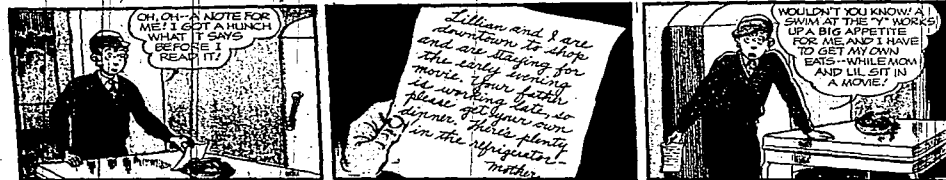 OH, OH--A NOTE FOR
ME! I GOT A HUNCH
WHAT IT SAYS
BEFORE I
READ IT!
Lillian and I are
downtown to shop
and are staying for
the early evening
movie. Your father
is working late, so
please get your own
dinner. There's plenty
in the refrigerator-
Mother
WOULDN'T YOU KNOW! A
SWIM AT THE "Y" WORKS
UP A BIG APPETITE
FOR ME, AND I HAVE
TO GET MY OWN
EATS--WHILE MOM
AND LIL SIT IN
A MOVIE!